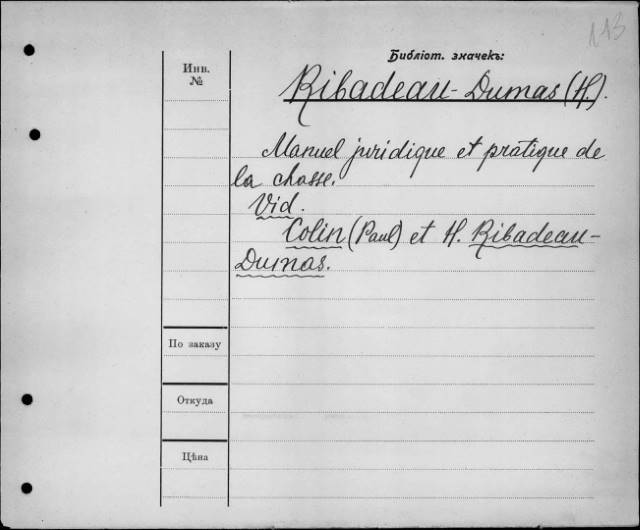 113
Библіот. значекъ:
Инв.
№
Ribadeau-Dumas (H).
Manuel juridique et pratique de
la chasse.
Vid.
Colin (Paul) et H. Ribadeau-
Dumas.
По заказу
Откуда
Цѣна